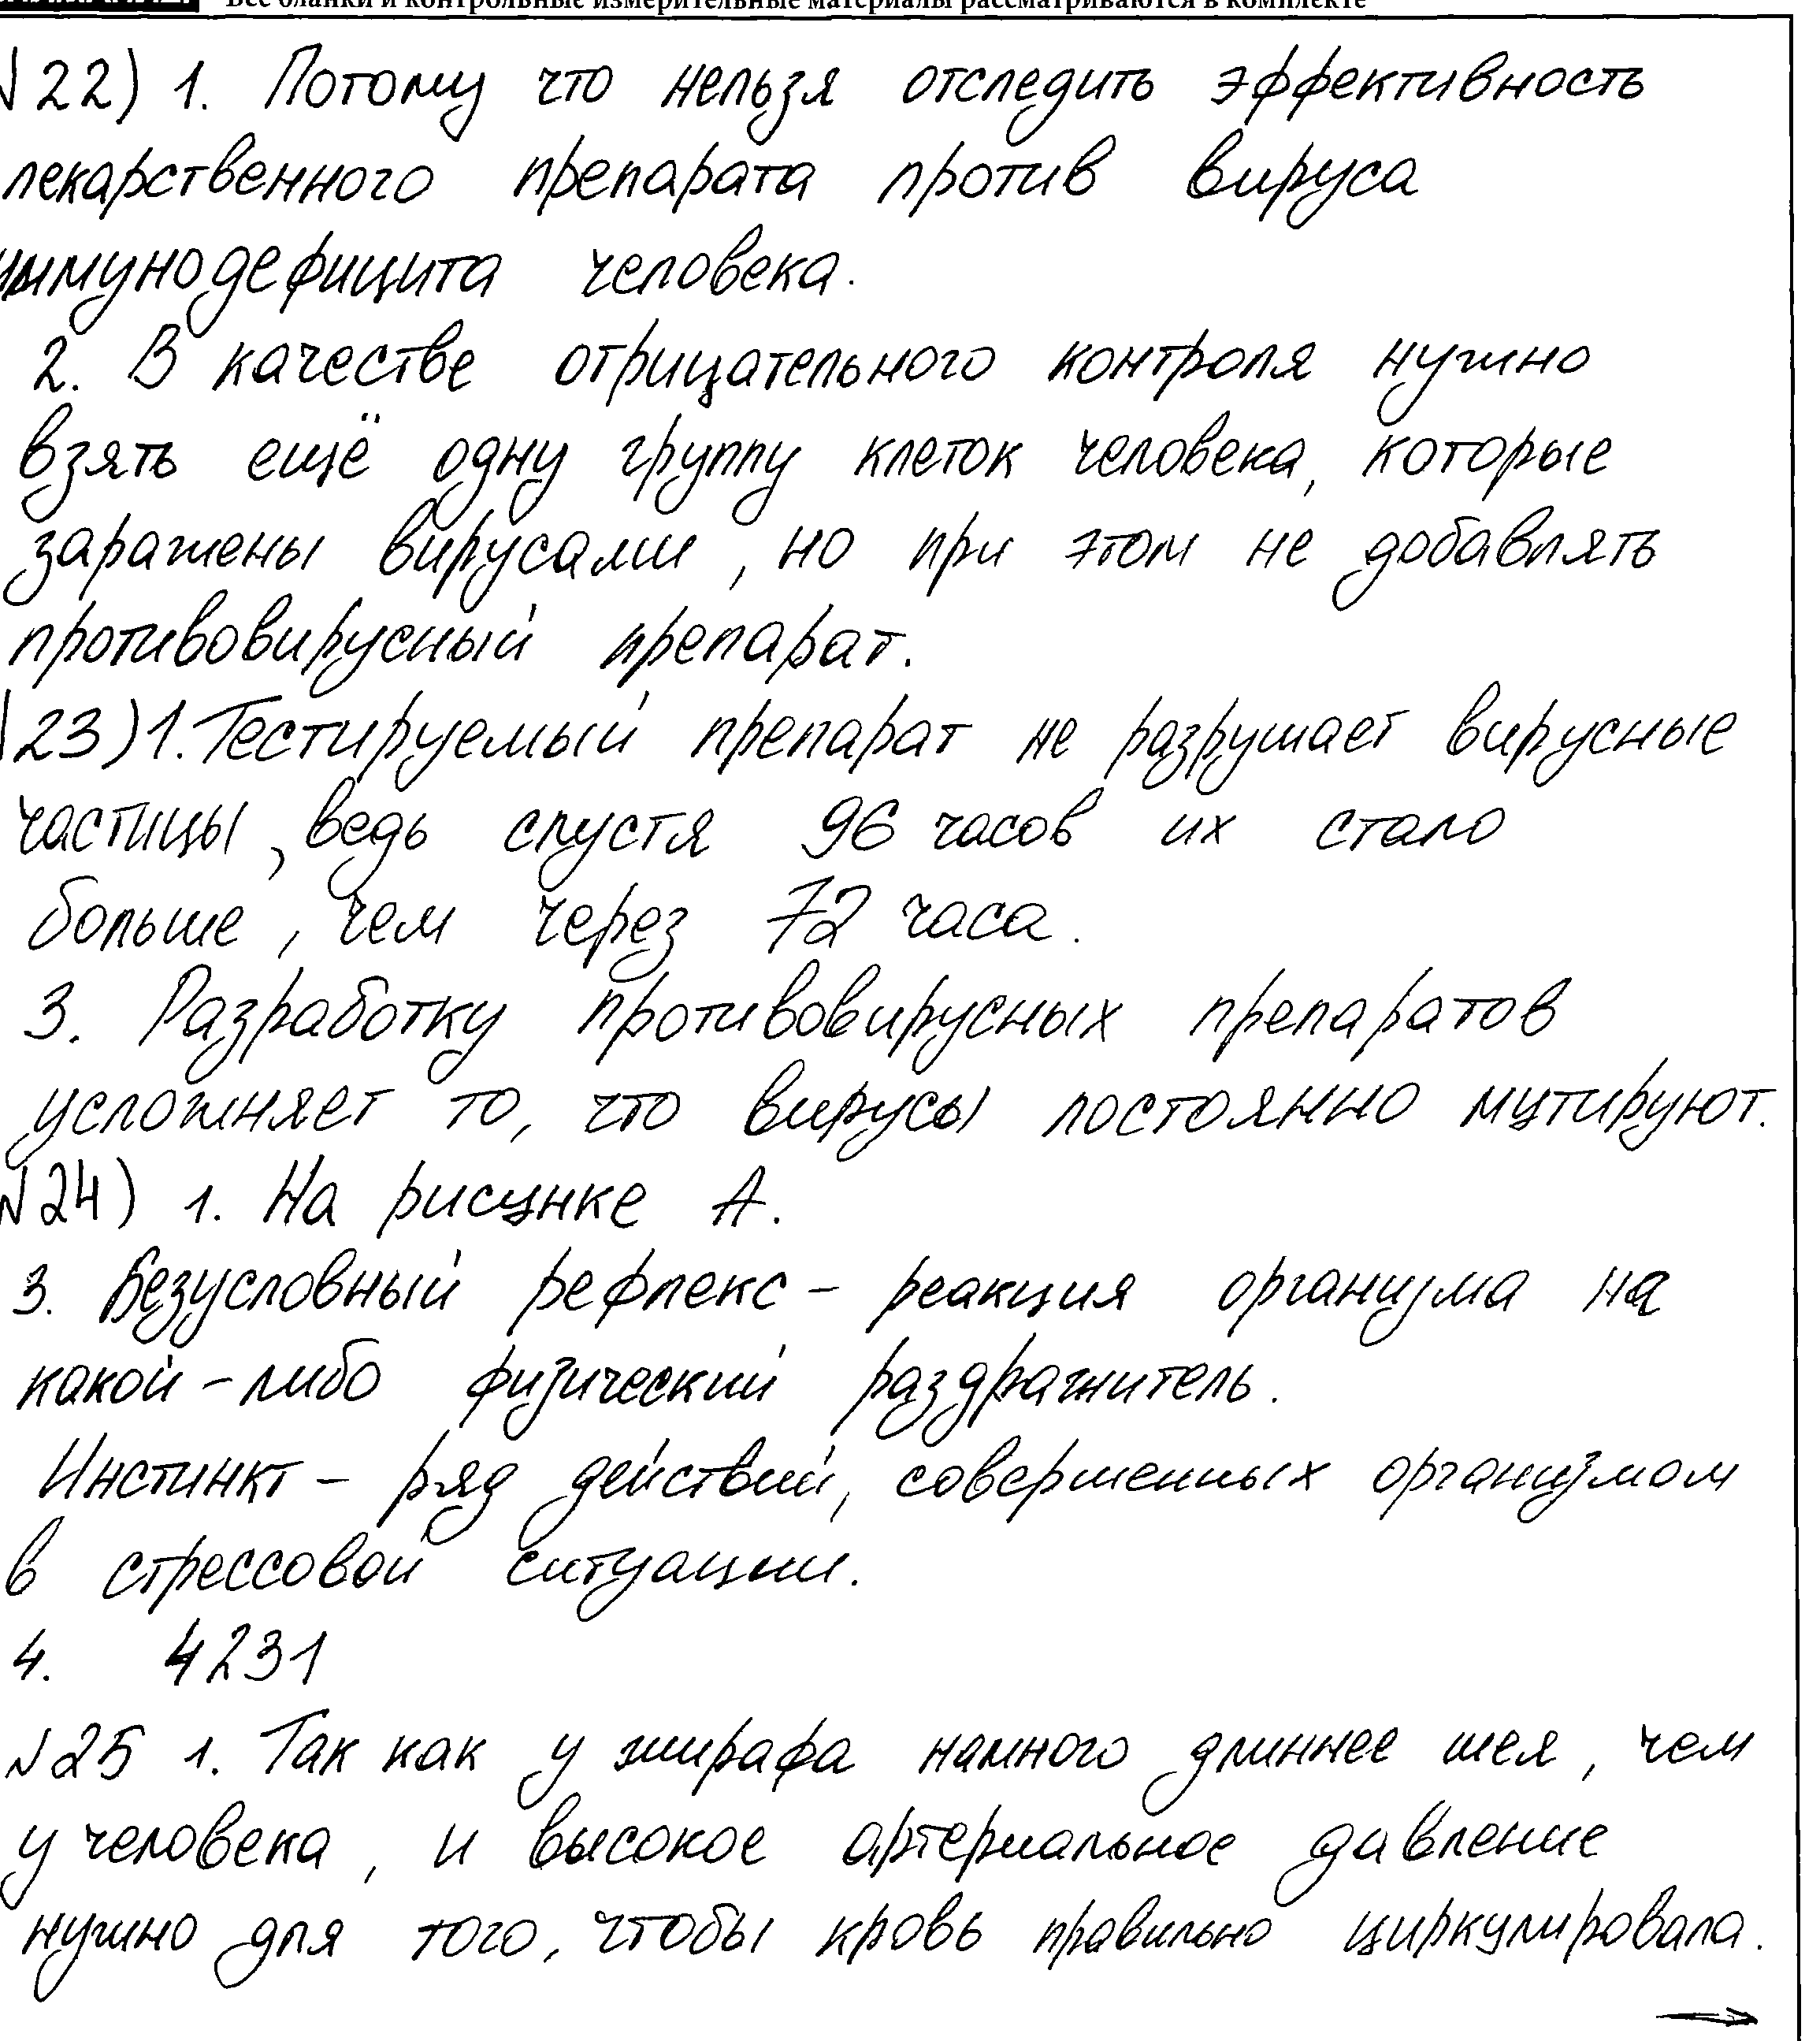 Все бланки и контрольные измерительные материалы рассматриваются в комплекте
№22) 1. Потому что нельзя отследить эффективность
лекарственного препарата против вируса
иммунодефицита человека.
2. В качестве отрицательного контроля нужно
взять ещё одну группу клеток человека, которые
заражены вирусами, но при этом не добавлять
противовирусный препарат.
№23) 1. Тестируемый препарат не разрушает вирусные
частицы, ведь спустя 96 часов их стало
больше, чем через 72 часа.
3. Разработку противовирусных препаратов
усложняет то, что вирусы постоянно мутируют.
№24) 1. На рисунке А.
3. Безусловный рефлекс – реакция организма на
какой-либо физический раздражитель.
Инстинкт – ряд действий, совершенных организмом
в стрессовой ситуации.
4. 4231
№25 1. Так как у жирафа намного длиннее шея, чем
у человека, и высокое артериальное давление
нужно для того, чтобы кровь правильно циркулировала.